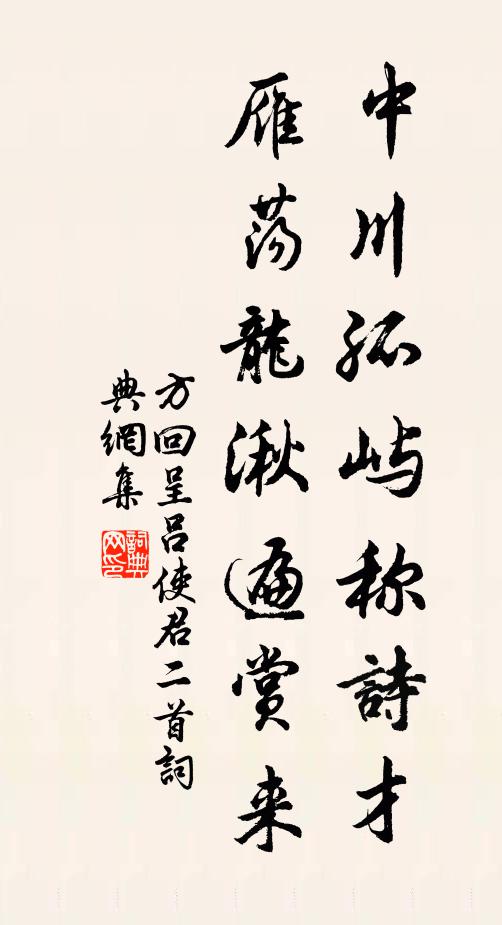 中川孤屿称詩才
雁荡龍湫遍赏来
方回呈吕使君二首詞
典網集
詞典
网印